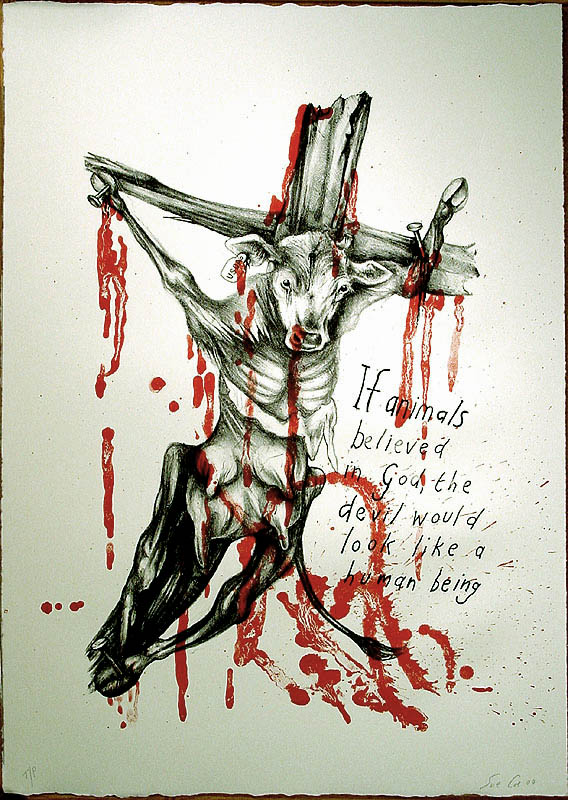 USDA
If animals
believed
in God, the
devil would
look like a
human being
T/P
Sue Coe